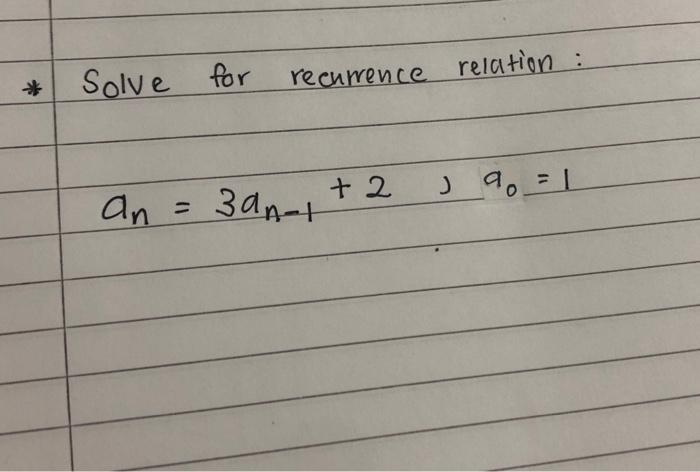 * Solve for recurrence relation :
aₙ = 3aₙ₋₁ + 2 , a₀ = 1